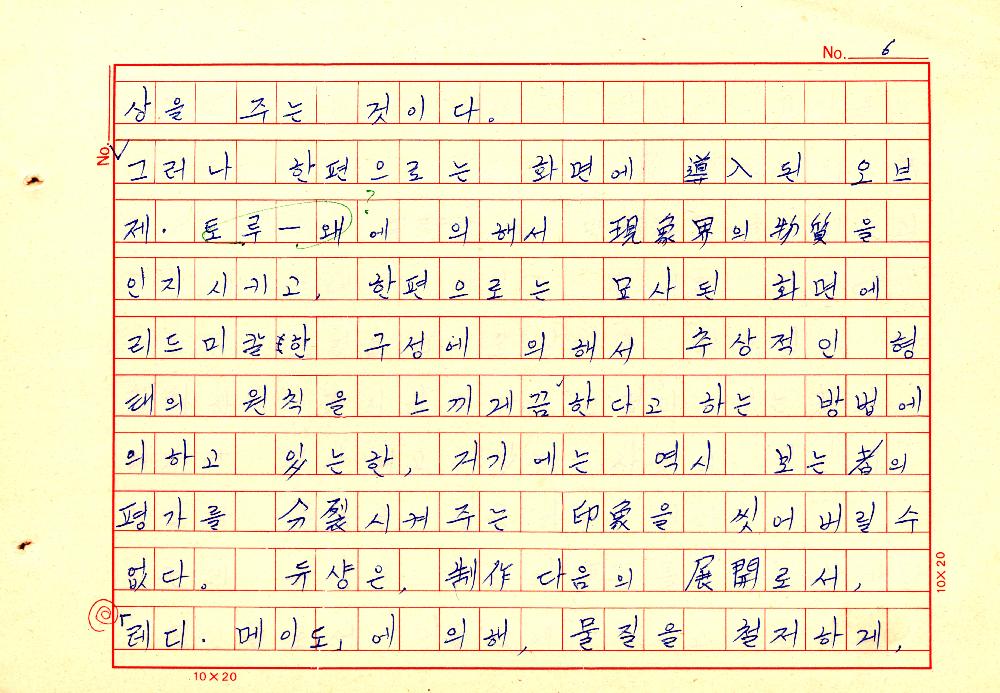 No. 6
No.
상을 주는 것이다.
✓그러나 한편으로는 화면에 導入된 오브
제·토루—왜에 의해서 現象界의 物質을
?
인지시키고, 한편으로는 묘사된 화면에
리드미칼한 구성에 의해서 추상적인 형
태의 원칙을 느끼게끔✓한다고 하는 방법에
의하고 있는한, 저기에는 역시 보는者의
평가를 分裂시켜주는 印象을 씻어버릴수
없다. 듀샹은, 制作 다음의 展開로서,
「레디·메이도」에 의해, 물질을 철저하게,
10×20
10×20